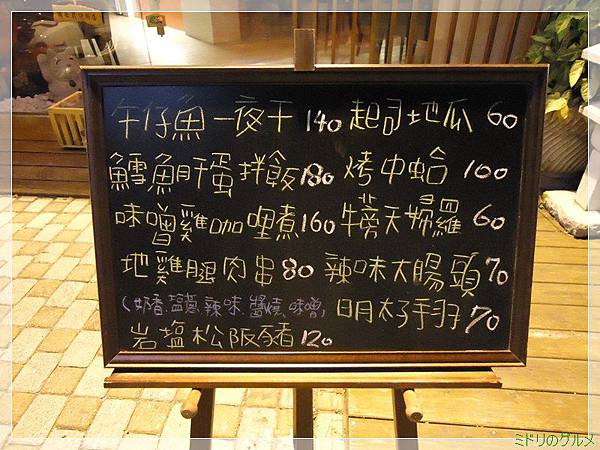 午仔魚一夜干 140 起司地瓜 60
鱈魚肝蛋拌飯 180 烤中蛤 100
味噌雞咖哩煮 160 牛蒡天婦羅 60
地雞腿肉串 80 辣味大腸頭 70
(奶香.塩蔥.辣味.醬燒.味噌) 明太子手羽 70
岩塩松阪豬 120
ミドリのグルメ